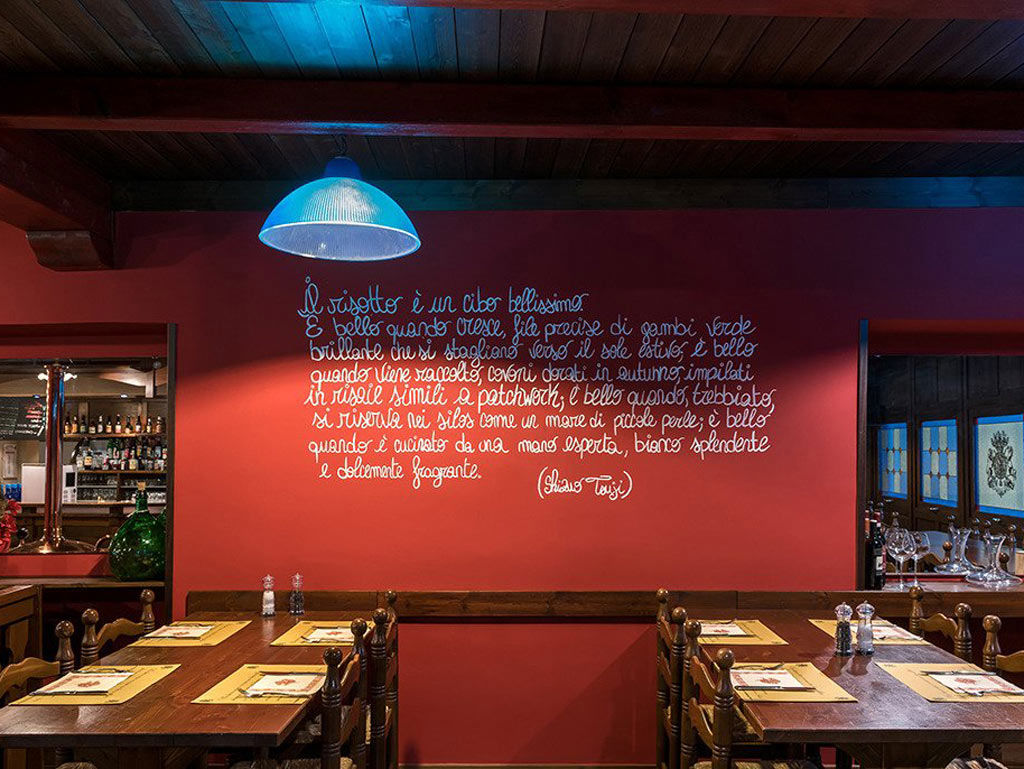 Il risotto è un cibo bellissimo.
È bello quando cresce, file precise di gambi verde
brillante che si stagliano verso il sole estivo; è bello
quando viene raccolto, covoni dorati in autunno impilati
in risaie simili a patchwork; è bello quando, trebbiato,
si riserva nei silos come un mare di piccole perle; è bello
quando è cucinato da una mano esperta, bianco splendente
e dolcemente fragrante.
(Shizuo Tsuji)